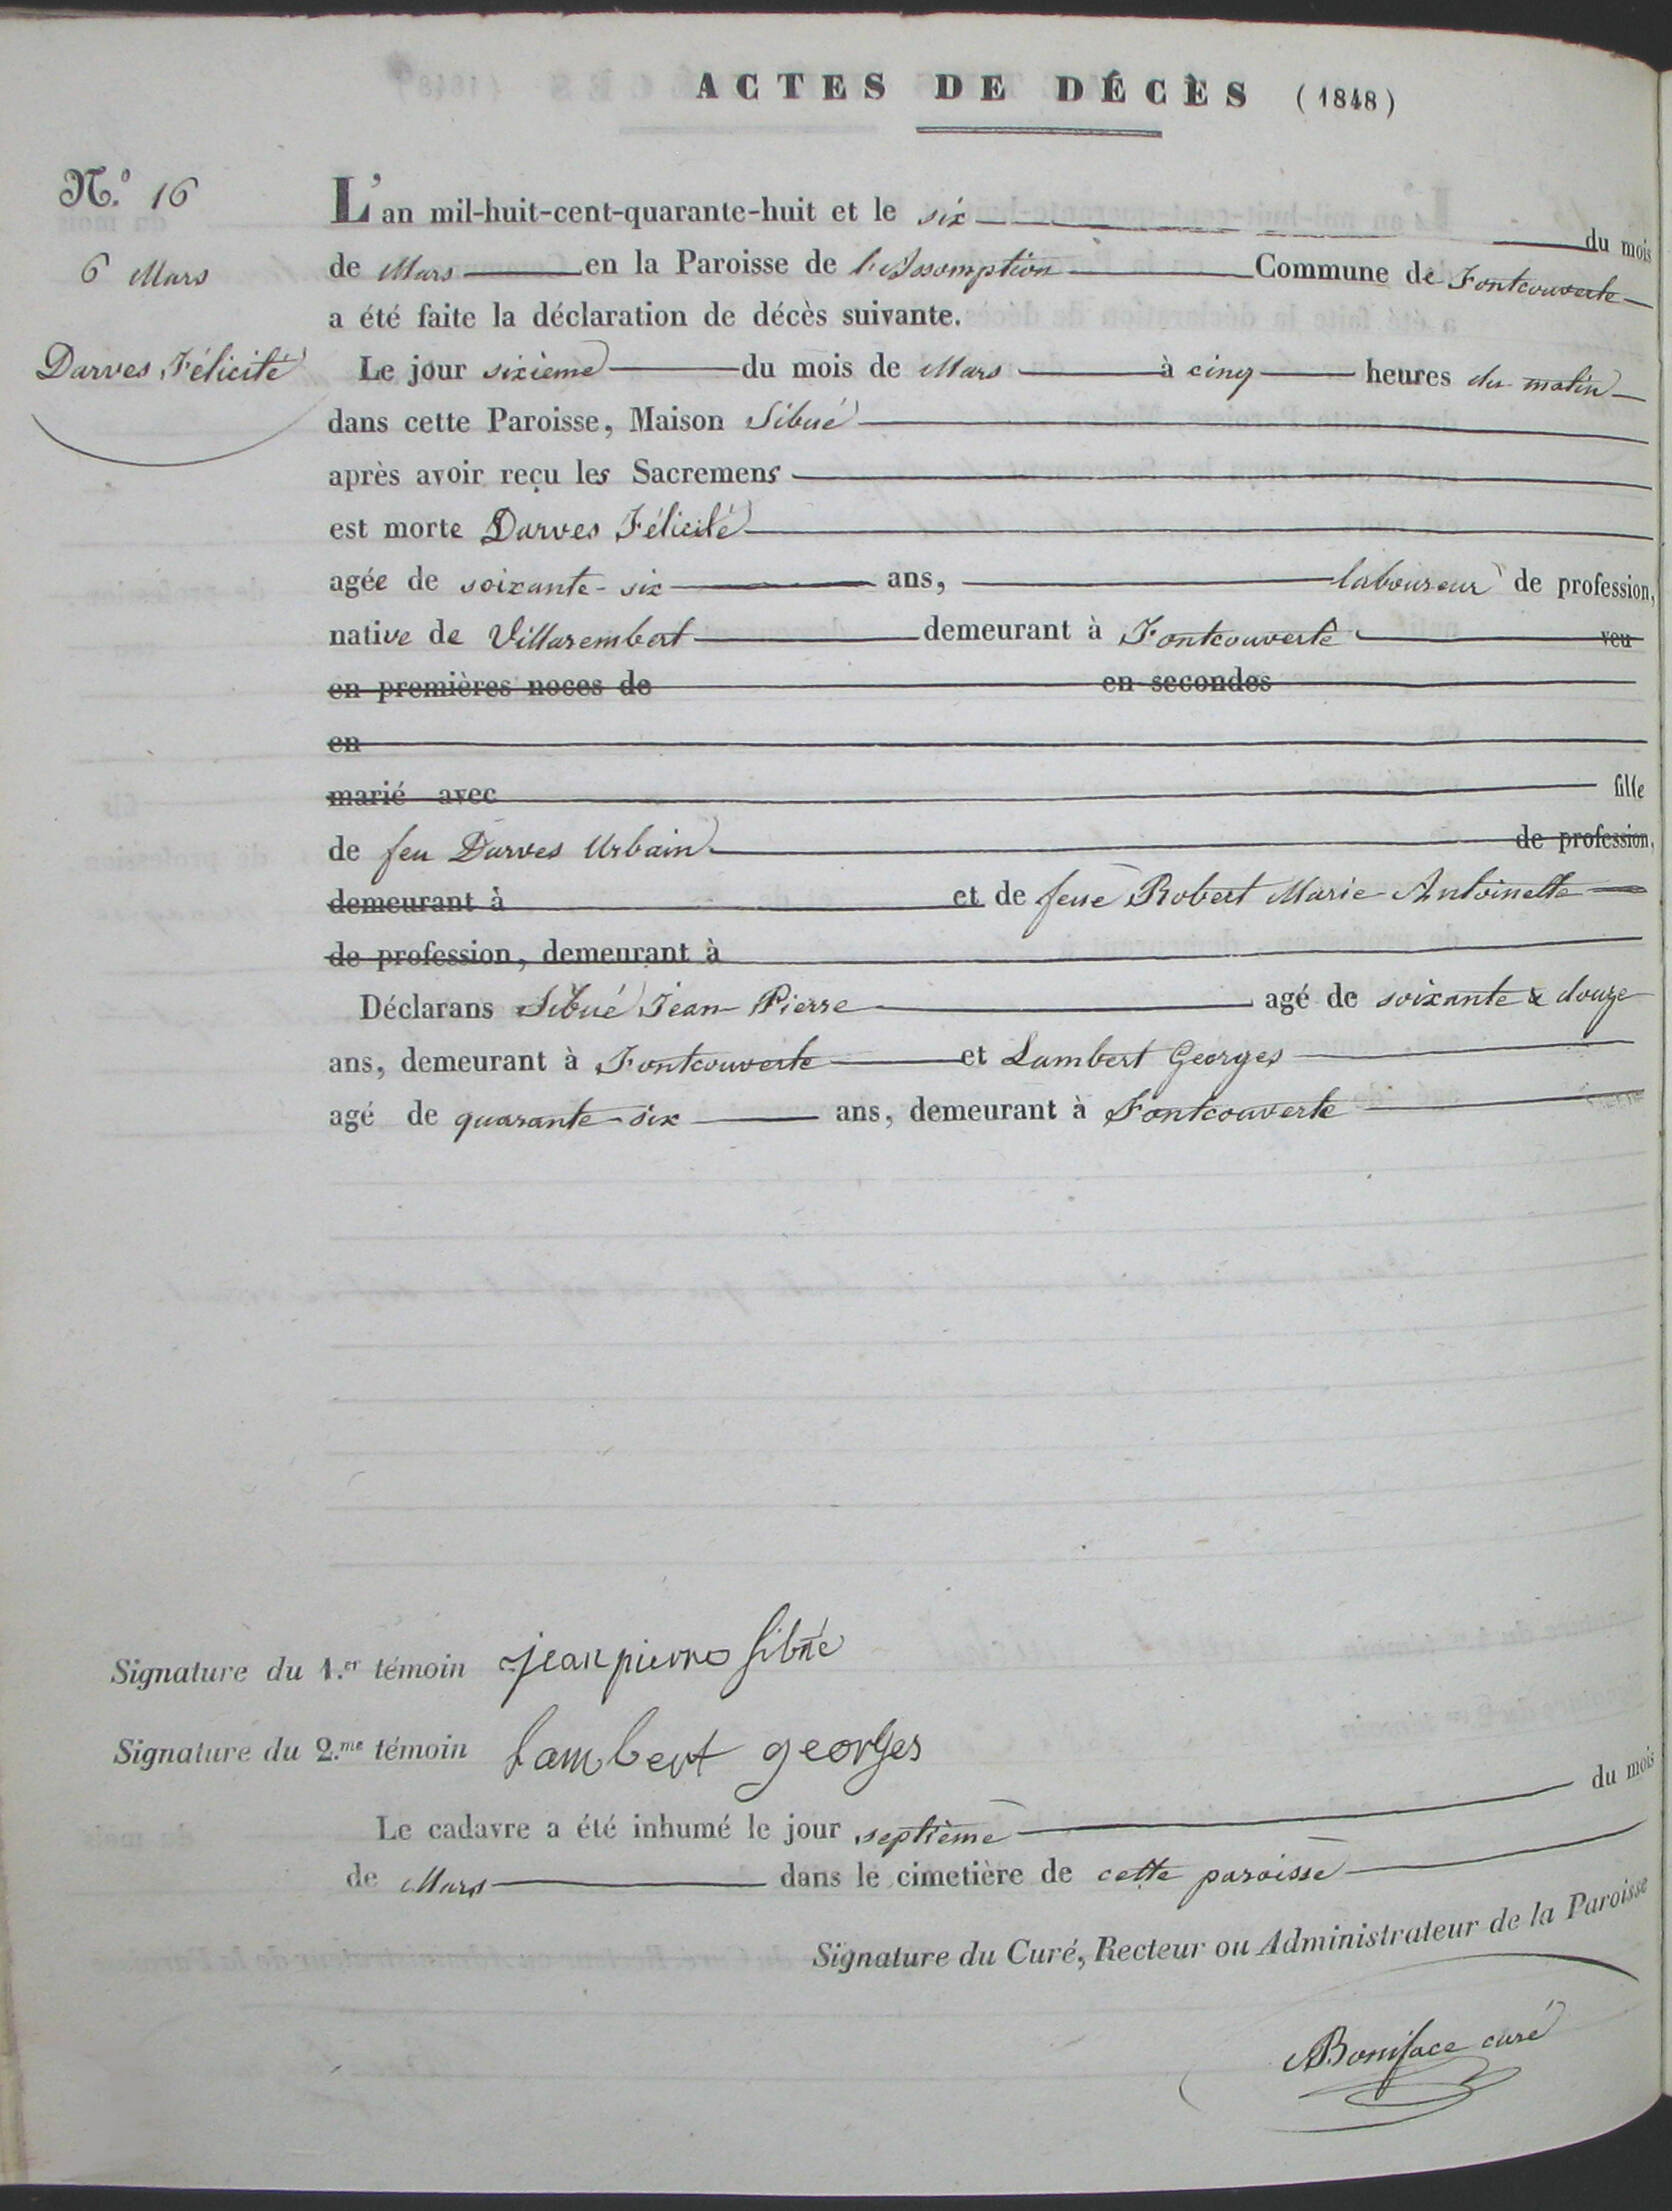 ACTES DE DÉCÈS (1848)
N.º 16
6 Mars
Darves Félicité
L'an mil-huit-cent-quarante-huit et le six du mois
de Mars en la Paroisse de l'Assomption Commune de Fontcouverte
a été faite la déclaration de décès suivante.
Le jour sixième du mois de Mars à cinq heures du matin
dans cette Paroisse, Maison Sibué
après avoir reçu les Sacremens
est morte Darves Félicité
agée de soixante-six ans, laboureur de profession,
native de Villarembert demeurant à Fontcouverte veu
en premières noces de en secondes
en
marié avec fille
de feu Darves Urbain de profession,
demeurant à et de feue Robert Marie-Antoinette
de profession, demeurant à
Déclarans Sibué Jean-Pierre agé de soixante & douze
ans, demeurant à Fontcouverte et Lambert Georges
agé de quarante-six ans, demeurant à Fontcouverte
Signature du 1.er témoin jean pierre Sibué
Signature du 2.me témoin Lambert georges
Le cadavre a été inhumé le jour septième du mois
de Mars dans le cimetière de cette paroisse
Signature du Curé, Recteur ou Administrateur de la Paroisse
ABoniface curé